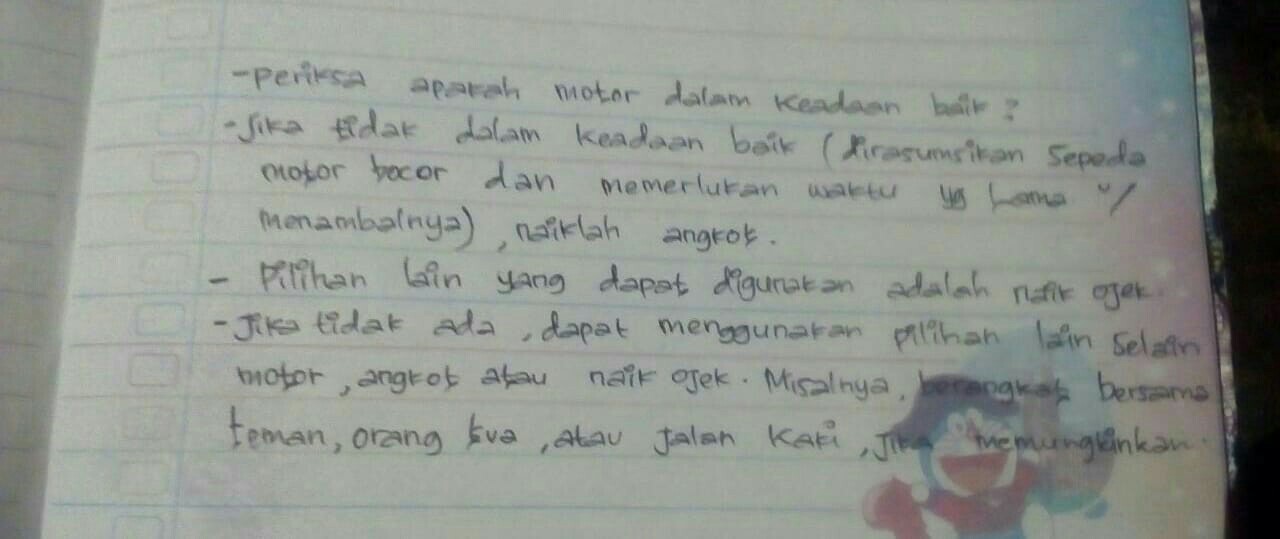 -periksa apakah motor dalam keadaan baik?
-Jika tidak dalam keadaan baik (dirasumsikan sepeda
motor bocor dan memerlukan waktu yg Lama u/
menambalnya), naiklah angkot.
- Pilihan lain yang dapat digunakan adalah naik ojek.
-Jika tidak ada, dapat menggunakan pilihan lain selain
motor, angkot atau naik ojek. Misalnya, berangkat bersama
teman, orang tua, atau jalan kaki, jika memungkinkan.